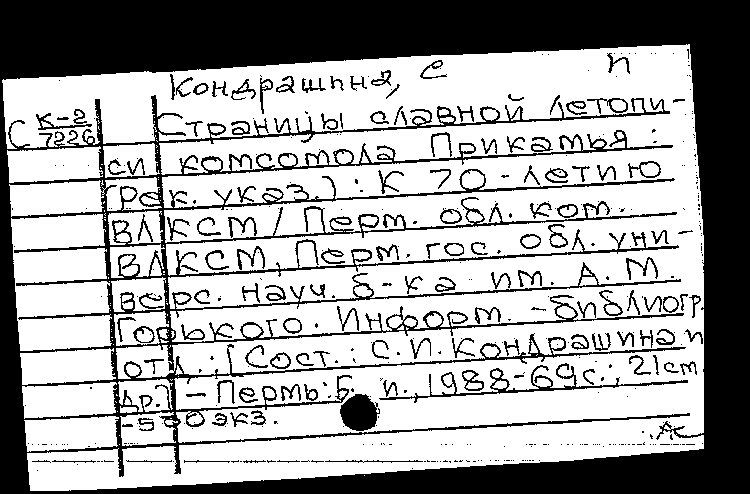 Кондрашина, С п
С К-2/7226 Страницы славной летопи-
си комсомола Прикамья :
(Рек. указ.) : К 70-летию
ВЛКСМ / Перм. обл. ком.
ВЛКСМ, Перм. гос. обл. уни-
верс. науч. б-ка им. А. М.
Горького. Информ.-библиогр.
отд.; [Сост.: С. И. Кондрашина и
др.] - Пермь: Б. и., 1988.-69с.; 21см.
-500экз.